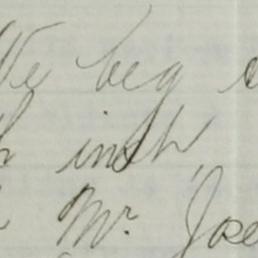 We beg
inst,
Mr. Jos